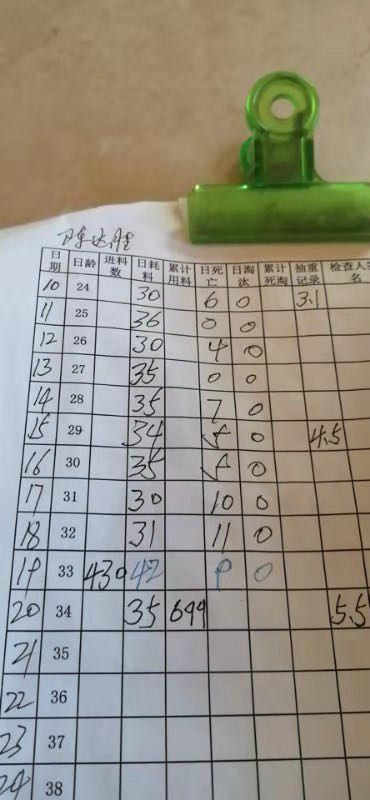 陈达胜
日期 日龄 进料数 日耗料 累计用料 日死亡 日淘汰 累计死淘 抽重记录 检查人签名
10 24 30 6 0 3.1
11 25 36 0 0
12 26 30 4 0
13 27 35 0 0
14 28 35 7 0
15 29 34 5 0 4.5
16 30 35 5 0
17 31 30 10 0
18 32 31 11 0
19 33 430 42 0
20 34 35 699 5.5
21 35
22 36
23 37
24 38